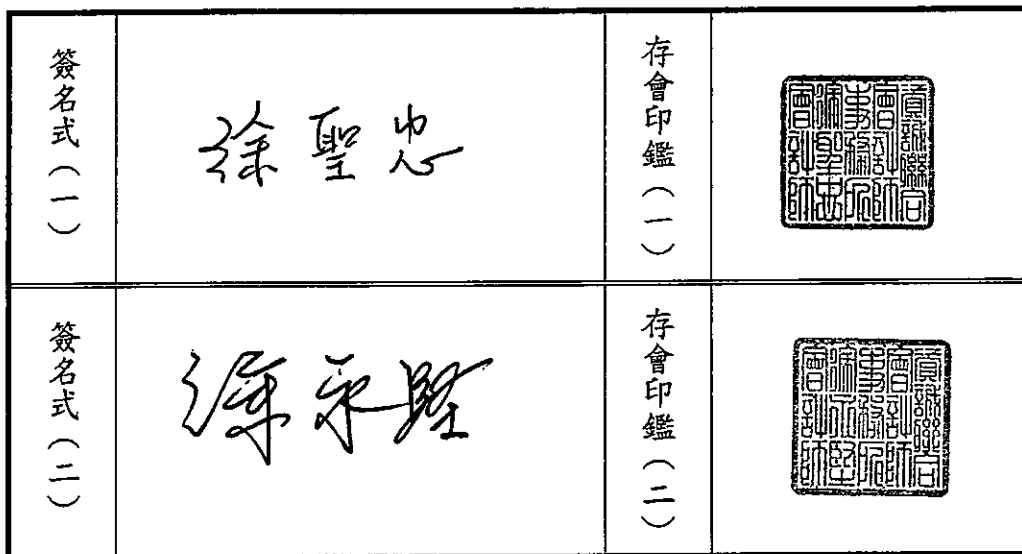 簽名式(一)
徐聖忠
存會印鑑(一)
資誠聯合
會計師
事務所
徐聖忠
會計師
簽名式(二)
徐永堅
存會印鑑(二)
資誠聯合
會計師
事務所
徐永堅
會計師